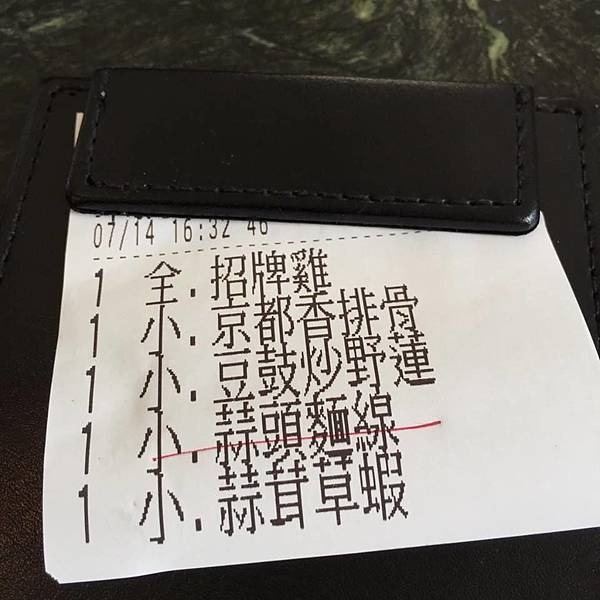 07/14 16:32 46
1 全. 招牌雞
1 小. 京都香排骨
1 小. 豆鼓炒野蓮
1 小. 蒜頭麵線
1 小. 蒜茸草蝦